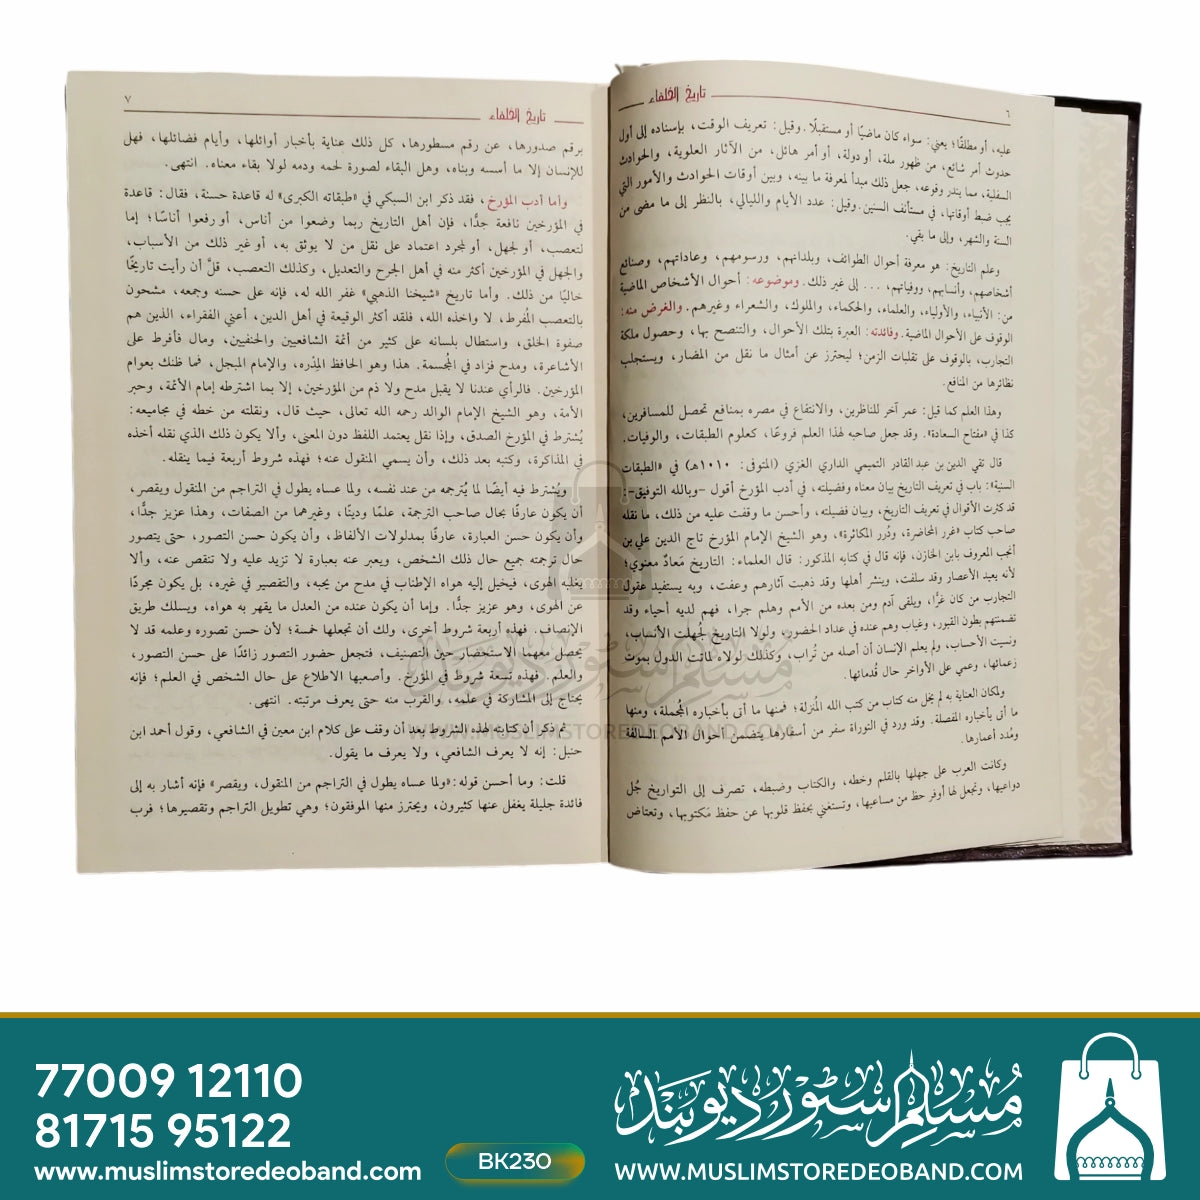 تاريخ الخلفاء
٦
عليه، أو مطلقًا؛ يعني: سواء كان ماضيًا أو مستقبلًا. وقيل: تعريف الوقت، بإسناده إلى أول
حدوث أمر شائع، من ظهور ملة، أو دولة، أو أمر هائل، من الآثار العلوية، والحوادث
السفلية، مما يندر وقوعه، جعل ذلك مبدأ لمعرفة ما بينه، وبين أوقات الحوادث والأمور التي
يجب ضبط أوقاتها، في مستأنف السنين. وقيل: عدد الأيام والليالي، بالنظر إلى ما مضى من
السنة والشهر، وإلى ما بقي.
وعلم التاريخ: هو معرفة أحوال الطوائف، وبلدانهم، ورسومهم، وعاداتهم، وصنائع
أشخاصهم، وأنسابهم، ووفياتهم، ... إلى غير ذلك. وموضوعه: أحوال الأشخاص الماضية
من: الأنبياء، والأولياء، والعلماء، والحكماء، والملوك، والشعراء وغيرهم. والغرض منه:
الوقوف على الأحوال الماضية. وفائدته: العبرة بتلك الأحوال، والتنصح بها، وحصول ملكة
التجارب، بالوقوف على تقلبات الزمن؛ ليحترز عن أمثال ما نقل من المضار، ويستجلب
نظائرها من المنافع.
وهذا العلم كما قيل: عمر آخر للناظرين، والانتفاع في مصره بمنافع تحصل للمسافرين،
كذا في «مفتاح السعادة». وقد جعل صاحبه لهذا العلم فروعًا، كعلوم الطبقات، والوفيات.
قال تقي الدين بن عبد القادر التميمي الداري الغزي (المتوفى: ١٠١٠هـ) في «الطبقات
السنية»: باب في تعريف التاريخ بيان معناه وفضيلته، في أدب المؤرخ أقول -وبالله التوفيق-:
قد كثرت الأقوال في تعريف التاريخ، وبيان فضيلته، وأحسن ما وقفت عليه من ذلك، ما نقله
صاحب كتاب «غرر المحاضرة، ودُرر المكاثرة»، وهو الشيخ الإمام المؤرخ تاج الدين علي بن
أنجب المعروف بابن الخازن، فإنه قال في كتابه المذكور: قال العلماء: التاريخ مَعادٌ معنوي؛
لأنه يعيد الأعصار وقد سلفت، وينشر أهلها وقد ذهبت آثارهم وعفت، وبه يستفيد عقول
التجارب من كان غرًّا، ويلقى آدم ومن بعده من الأمم وهلم جرا، فهم لديه أحياء وقد
تضمنتهم بطون القبور، وغياب وهم عنده في عداد الحضور، ولولا التاريخ لجُهلت الأنساب،
ونسيت الأحساب، ولم يعلم الإنسان أن أصله من تُراب، وكذلك لولاه لماتت الدول بموت
زعمائها، وعمي على الأواخر حال قُدمائها.
ولمكان العناية به لم يخل منه كتاب من كتب الله المُنزلة؛ فمنها ما أتى بأخباره المُجملة، ومنها
ما أتى بأخباره المفصلة. وقد ورد في التوراة سفر من أسفارها يتضمن أحوال الأمم السالفة
ومُدد أعمارها.
وكانت العرب على جهلها بالقلم وخطه، والكتاب وضبطه، تصرف إلى التواريخ جُل
دواعيها، وتجعل لها أوفر حظ من مساعيها، وتستغني بحفظ قلوبها عن حفظ مَكتوبها، وتعتاض
تاريخ الخلفاء
٧
برقم صدورها، عن رقم مسطورها، كل ذلك عناية بأخبار أوائلها، وأيام فضائلها، فهل
للإنسان إلا ما أسسه وبناه، وهل البقاء لصورة لحمه ودمه لولا بقاء معناه. انتهى.
وأما أدب المؤرخ، فقد ذكر ابن السبكي في «طبقاته الكبرى» له قاعدة حسنة، فقال: قاعدة
في المؤرخين نافعة جدًّا، فإن أهل التاريخ ربما وضعوا من أناس، أو رفعوا أناسًا؛ إما
لتعصب، أو لجهل، أو لمجرد اعتماد على نقل من لا يوثق به، أو غير ذلك من الأسباب،
والجهل في المؤرخين أكثر منه في أهل الجرح والتعديل، وكذلك التعصب، قلَّ أن رأيت تاريخًا
خاليًا من ذلك. وأما تاريخ «شيخنا الذهبي» غفر الله له، فإنه على حسنه وجمعه، مشحون
بالتعصب المُفرط، لا واخذه الله، فلقد أكثر الوقيعة في أهل الدين، أعني الفقراء، الذين هم
صفوة الخلق، واستطال بلسانه على كثير من أئمة الشافعيين والحنفيين، ومال فأفرط على
الأشاعرة، ومدح فزاد في المُجسمة. هذا وهو الحافظ المِدْره، والإمام المبجل، فما ظنك بعوام
المؤرخين. فالرأي عندنا لا يقبل مدح ولا ذم من المؤرخين، إلا بما اشترطه إمام الأئمة، وحبر
الأمة، وهو الشيخ الإمام الوالد رحمه الله تعالى، حيث قال، ونقلته من خطه في مجاميعه:
يُشترط في المؤرخ الصدق، وإذا نقل يعتمد اللفظ دون المعنى، وألا يكون ذلك الذي نقله أخذه
في المذاكرة، وكتبه بعد ذلك، وأن يسمي المنقول عنه؛ فهذه شروط أربعة فيما ينقله.
ويُشترط فيه أيضًا لما يُترجمه من عند نفسه، ولما عساه يطول في التراجم من المنقول ويقصر،
أن يكون عارفًا بحال صاحب الترجمة، علمًا ودينًا، وغيرهما من الصفات، وهذا عزيز جدًّا،
وأن يكون حسن العبارة، عارفًا بمدلولات الألفاظ، وأن يكون حسن التصور، حتى يتصور
حال ترجمته جميع حال ذلك الشخص، ويعبر عنه بعبارة لا تزيد عليه ولا تنقص عنه، وألا
يغلبه الهوى، فيخيل إليه هواه الإطناب في مدح من يحبه، والتقصير في غيره، بل يكون مجردًا
عن الهوى، وهو عزيز جدًّا. وإما أن يكون عنده من العدل ما يقهر به هواه، ويسلك طريق
الإنصاف. فهذه أربعة شروط أخرى، ولك أن تجعلها خمسة؛ لأن حسن تصوره وعلمه قد لا
يحصل معهما الاستحضار حين التصنيف، فتجعل حضور التصور زائدًا على حسن التصور،
والعلم. فهذه تسعة شروط في المؤرخ. وأصعبها الاطلاع على حال الشخص في العلم؛ فإنه
يحتاج إلى المشاركة في علمه، والقرب منه حتى يعرف مرتبته. انتهى.
ثم ذكر أن كتابته لهذه الشروط بعد أن وقف على كلام ابن معين في الشافعي، وقول أحمد ابن
حنبل: إنه لا يعرف الشافعي، ولا يعرف ما يقول.
قلت: وما أحسن قوله: «ولما عساه يطول في التراجم من المنقول، ويقصر» فإنه أشار به إلى
فائدة جليلة يغفل عنها كثيرون، ويحترز منها الموفقون؛ وهي تطويل التراجم وتقصيرها؛ فرب
مسلم سٹور دیوبند
WWW.MUSLIMSTOREDEOBAND.COM
77009 12110
81715 95122
www.muslimstoredeoband.com
BK230
مسلم سٹور دیوبند
WWW.MUSLIMSTOREDEOBAND.COM